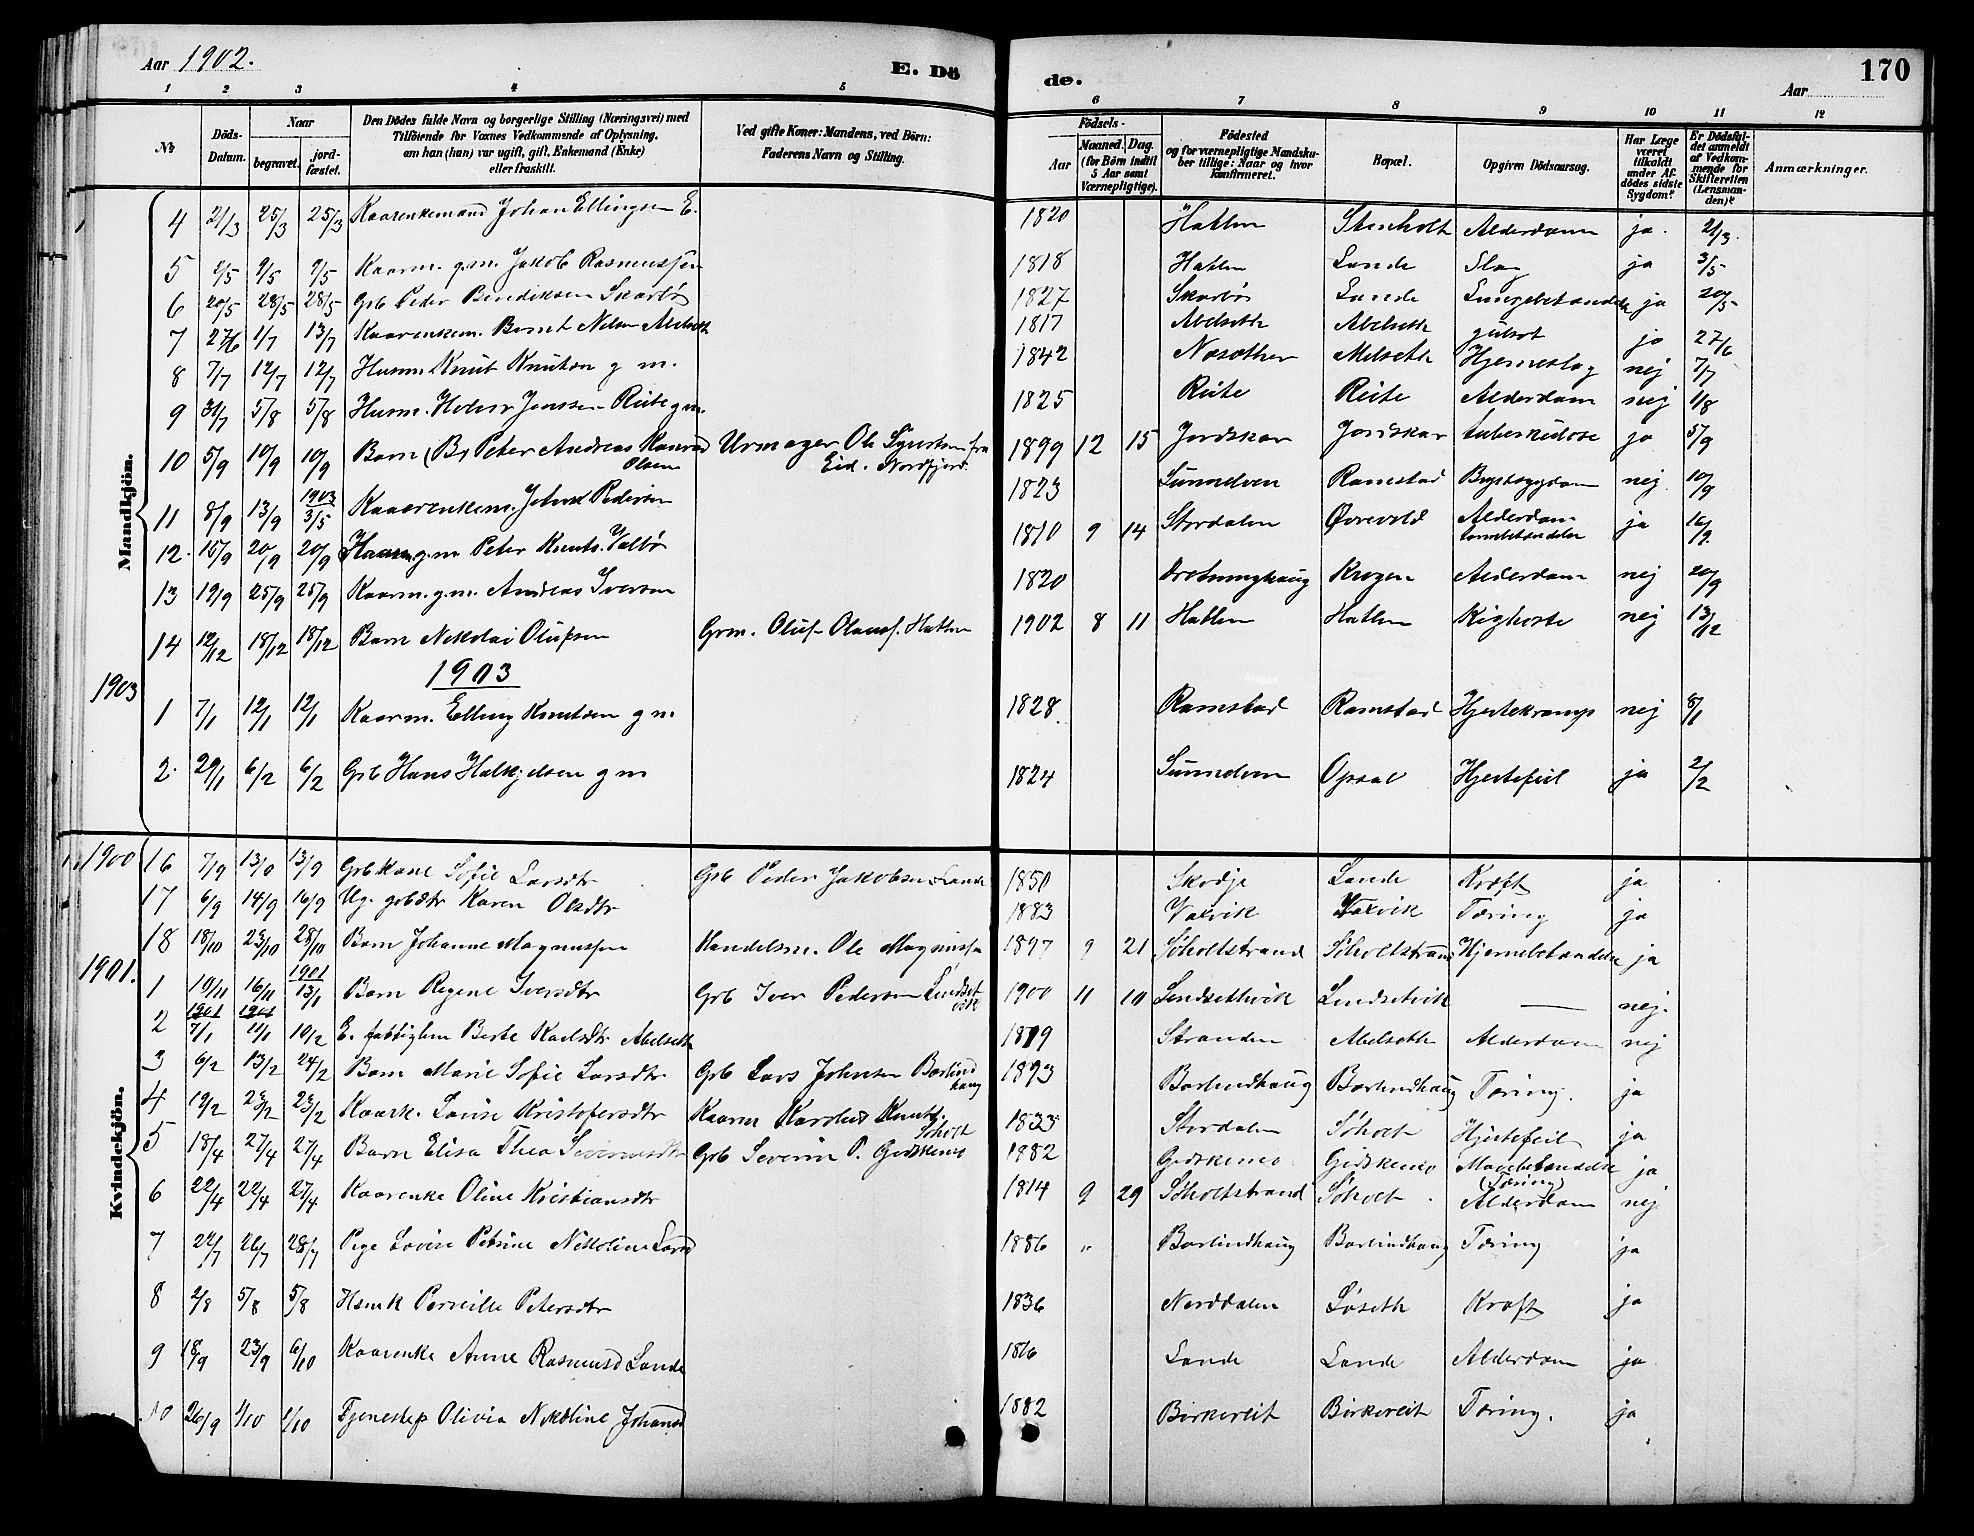 Aar 1902.
E. Dö
de.
Aar
170
1 2 3 4 5 6 7 8 9 10 11 12
No
Döds-Datum.
Naar
begravet.
jord-fæstet.
Den Dödes fulde Navn og borgerlige Stilling (Næringsvei) med
Tilföiende for Voxnes Vedkommende af Oplysning,
om han (hun) var ugift, gift, Enkemand (Enke)
eller fraskilt.
Ved gifte Koner: Mandens, ved Börn:
Faderens Navn og Stilling.
Födsels-
Aar
Maaned. Dag.
(for Börn indtil
5 Aar samt
Værnepligtige).
Födested
og for værnepligtige Mandska-
ber tillige: Naar og hvor
konfirmeret.
Bopæl.
Opgiven Dödsaarsag.
Har Læge
været
tilkaldt
under Af-
dödes sidste
Sygdom?
Er Dödsfal-
det anmeldt
af Vedkom-
mende for
Skifteretten
(Lensman-
den)?
Anmærkninger.
Mandkjön.
4 21/3 25/3 25/3 Kaarenkemand Johan Ellingsen E. 1820 Hatlen Stenholt Alderdom ja. 21/3.
5 2/5 9/5 9/5 Kaarm. g.m. Jakob Rasmussen 1818 Hatlen Lande Slag ja 3/5
6 20/5 28/5 28/5 Grb Peder Bendiksen Skarbø 1827 Skarbø Lande Lungebetændelse ja 20/5
7 27/6 1/7 13/7 Kaarenkem. Bernt Nilsen Abelseth 1817 Abelseth Abelseth gulsot ja 27/6
8 7/7 12/7 12/7 Husm. Knut Knutsen g m. 1842 Melseth Hjerneslag nej 7/7
9 31/7 5/8 5/8 Husm. Jenssen Reite g m. 1825 Reite Reite Alderdom nej 1/8
10 5/9 10/9 10/9 Barn (B) Peter Andreas Konrad Olsen Urmager Ole Sjurdsen fra Eid. Nordfjord. 1899 12 15 Jordskar Jordskar tuberkulose ja 5/9
11 8/9 13/9 1903 3/5 Kaarenkem. John Pedersen 1823 Sunnelven Ramstad Brystsygdom nej 10/9
12. 15/9 20/9 20/9 Kaarm g.m Peter Knuts. Valbø 1810 9 14 Stordalen Øvrevold Alderdom ja 16/9.
13 19/9 25/9 25/9 Kaarm. g.m. Andreas Iversen 1820 Drotninghaug Krogen Alderdom nej 20/9
14 12/12 18/12 18/12 Barn Nikolai Olufsen Grm. Oluf Hatlen 1902 8 11 Hatlen Hatlen Kighoste nej 13/12
1903
1903 1 7/1 12/1 12/1 Kaarm. Elling Knutsen g m 1828. Ramstad Ramstad Hjertekramp nej 8/1
2. 29/1 6/2 6/2 Grb Hans Halkjelsen g m 1824 Sunnelven Opsal Hjertefeil ja 2/2
Kvindekjön.
1900 16 7/9 13/9 13/9 Grbkone Sofie Larsdtr Grb Peder Jakobsen Lande 1850 Skodje Lande Kræft ja
17 6/9 14/9 16/9 Ug. grbdtr Karen Olsdtr 1883 Valvik Valvik Tæring ja
18 18/10 23/10 28/10 Barn Johanne Magnussen Handelsm. Ole Magnussen 1897 9 21 Søholtstrand Søholtstrand Hjernebetændelse ja
1901. 1 10/11 16/11 1901 13/1 Barn Regine Iversdtr Grb Iver Pedersen Lindsetvik 1900 11 10 Lindsethvik Lindsetvik — nej.
2 1901 7/1 1901 11/1 10/2 E. fattiglem Berte Karlsdtr Abelseth 1819 Stranden Abelseth Alderdom nej
3 6/2 13/2 24/2 Barn Marie Sofie Larsdtr Grb Lars Johnsen Barlindhaug 1893 Barlindhaug Barlindhaug Tæring. ja
4 19/2 23/2 23/2 Kaark. Lovise Kristofersdtr Kaarm Karolus Knuts. Søholt 1833 Stordalen Søholt Hjertefeil ja
5 18/4 27/4 27/4 Barn Elisa Thea Severinsdtr Grb Severin P. Gjdskemo 1882 Gjdskemo Gjdskemo Mavebetændelse (Tæring) ja
6 22/4 22/4 27/4 Kaarenke Oline Kristiansdtr 1814 9 29 Søholtstrand Søholt. Alderdom nej
7 22/7 26/7 28/7 Pige Lovise Petrine Nikoline Larsd 1886 " Barlindhaug Barlindhaug Tæring ja
8 2/8 5/8 5/8 Husmk Pernille Petersdtr 1836 Norddalen Løseth Kræft ja
9 18/9 23/9 6/10 Kaarenke Anne Rasmusd Lande 1816 Lande Lande Alderdom ja
10 26/9 1/10 1/10 Tjenestep Olivia Nikoline Johansd 1882 Birkereit Birkereit Tæring. ja